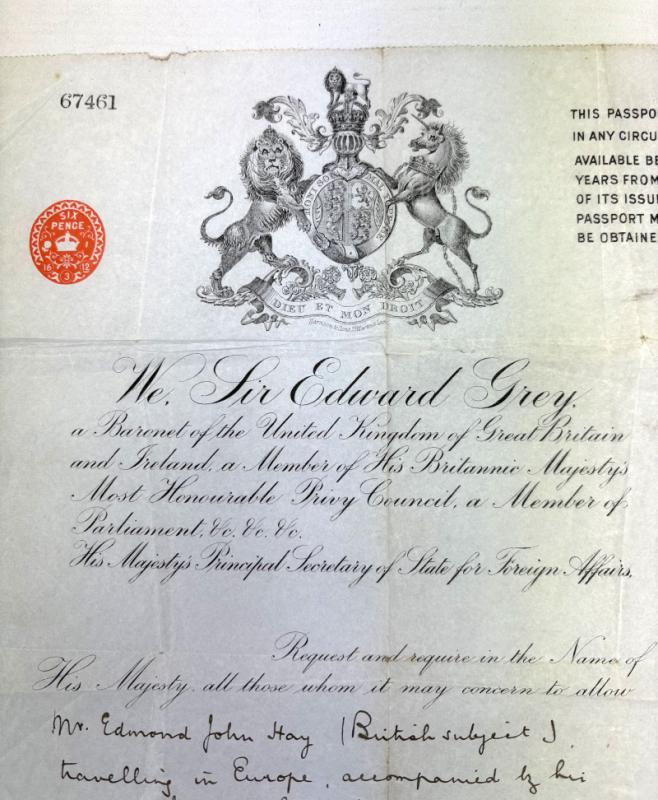 67461
THIS PASSPO
IN ANY CIRCU
AVAILABLE BE
YEARS FROM
OF ITS ISSU
PASSPORT M
BE OBTAINE
SIX
PENCE
16 12
3
DIEU ET MON DROIT
We, Sir Edward Grey,
a Baronet of the United Kingdom of Great Britain
and Ireland, a Member of His Britannic Majesty's
Most Honourable Privy Council, a Member of
Parliament, &c. &c. &c.
His Majesty's Principal Secretary of State for Foreign Affairs,
Request and require in the Name of
His Majesty, all those whom it may concern to allow
Mr. Edmond John Hay (British subject),
travelling in Europe, accompanied by his